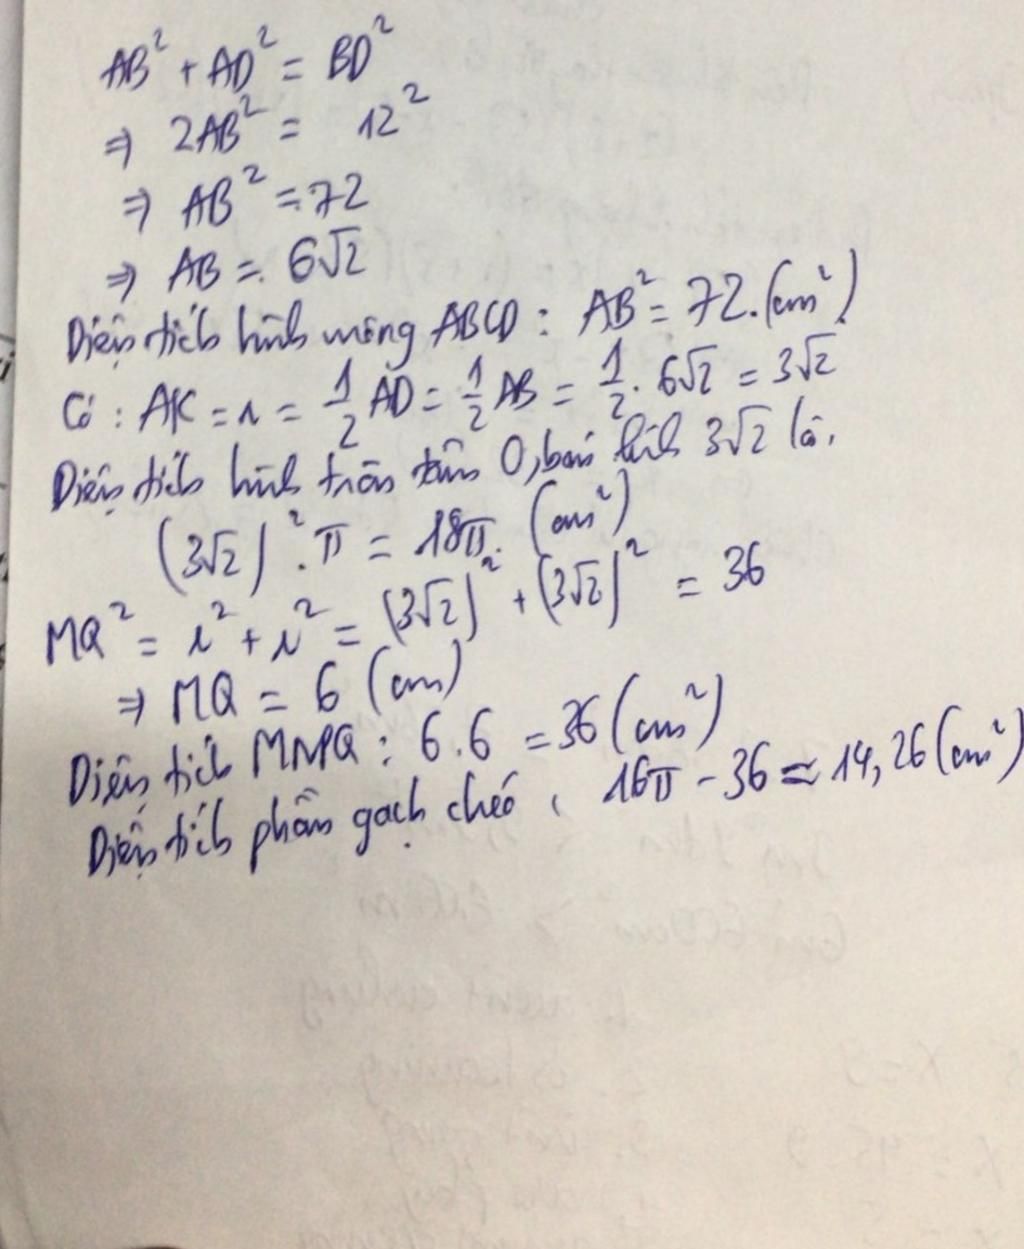 AB² + AD² = BD²
⇒ 2AB² = 12²
⇒ AB² = 72
⇒ AB = 6√2
Diện tích hình vuông ABCD : AB² = 72. (cm²)
Có : AK = r = 1/2 AD = 1/2 AB = 1/2 . 6√2 = 3√2
Diện tích hình tròn tâm O, bán kính 3√2 là.
(3√2)² . π = 18π. (cm²)
MQ² = r² + r² = (3√2)² + (3√2)² = 36
⇒ MQ = 6 (cm)
Diện tích MNPQ : 6.6 = 36 (cm²)
Diện tích phần gạch chéo : 16π - 36 ≈ 14,26 (cm²)